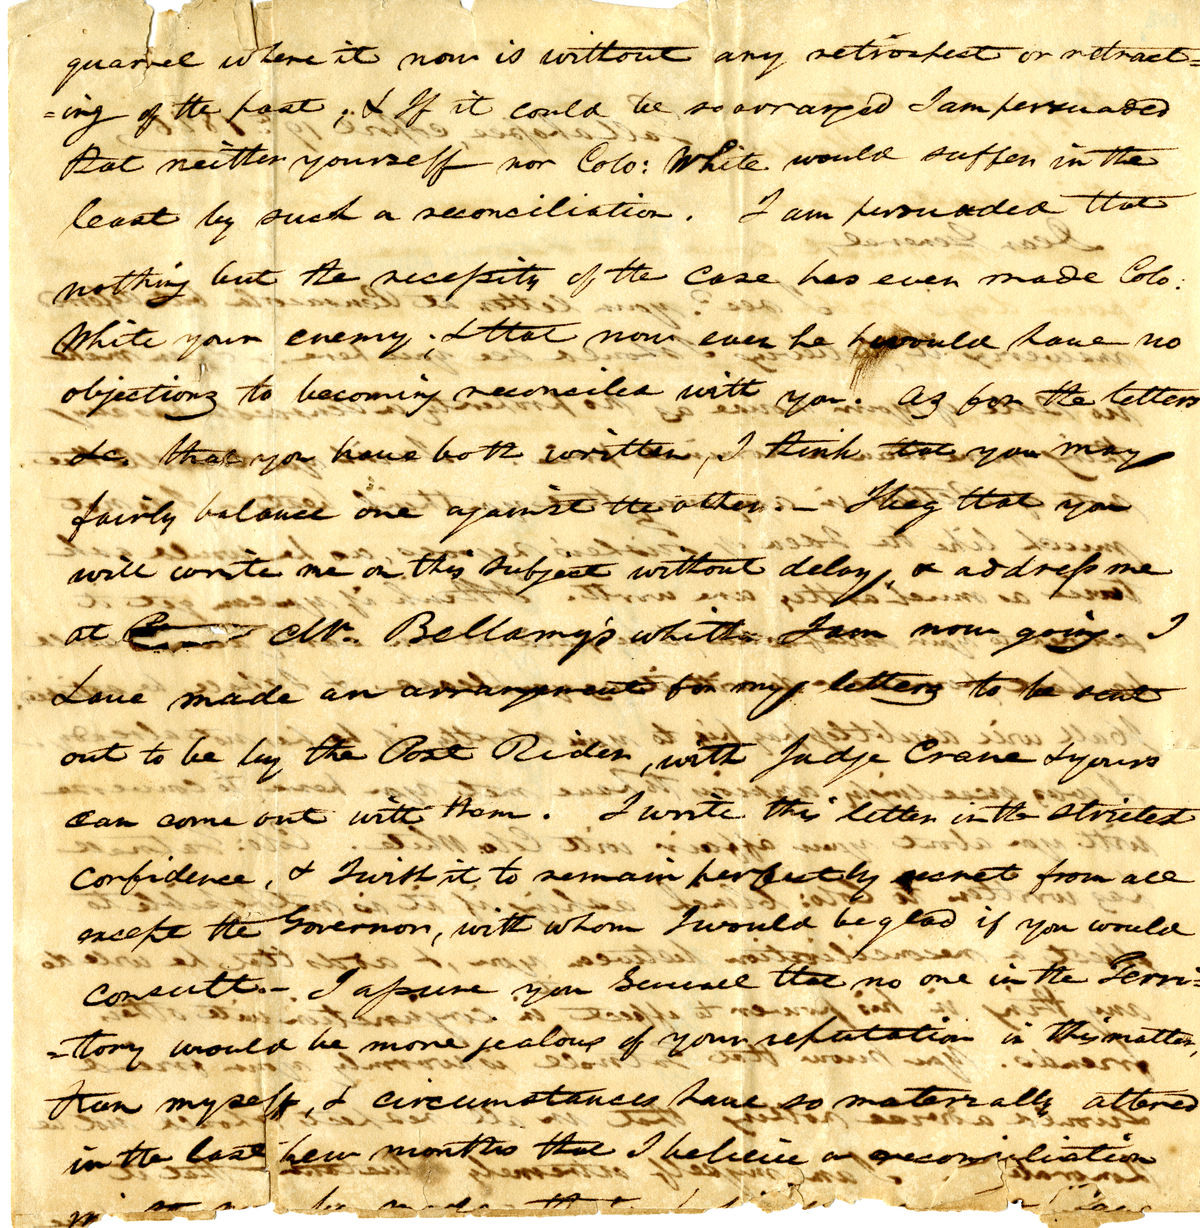 quarrel where it now is without any retrospect or retract=
=ing of the past, & If it could be so arranged I am persuaded
that neither yourself nor Colo: White would suffer in the
least by such a reconciliation. I am persuaded that
nothing but the necessity of the case has ever made Colo:
White your enemy; & that now even he would have no
objections to becoming reconciled with you. As for the letters
&c. that you have both written, I think that you may
fairly balance one against the other.— I beg that you
will write me on this subject without delay, & address me
at Mr. Bellamy's whither I am now going. I
have made an arrangement for my letters to be sent
out to be by the Post Rider, with Judge Crane & yours
can come out with them. I write this letter in the strictest
confidence, & I wish it to remain perfectly secret from all
except the Governor, with whom I would be glad if you would
consult.— I assure you General that no one in the Terri=
=tory would be more jealous of your reputation in this matter,
than myself, & circumstances have so materially altered
in the last few months that I believe a reconciliation